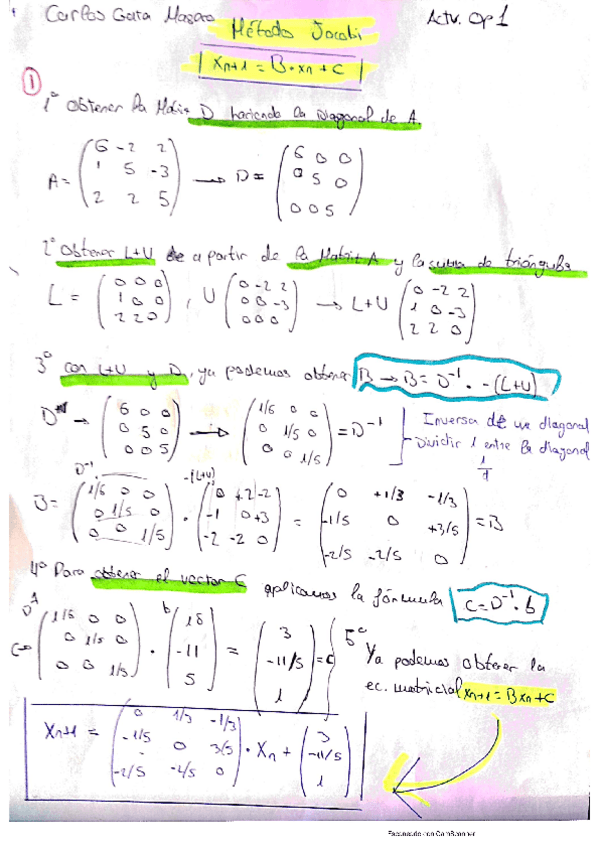 Carlos Gata Masero Actv. Op 1
Método Jacobi
Xn+1 = B · xn + C
①
1º Obtener la Matriz D haciendo la Diagonal de A.
A = (6 -2 2 / 1 5 -3 / 2 2 5) → D = (6 0 0 / 0 5 0 / 0 0 5)
2º Obtener L+U de a partir de la Matriz A y la suma de triángulos
L = (0 0 0 / 1 0 0 / 2 2 0) , U (0 -2 2 / 0 0 -3 / 0 0 0) → L+U (0 -2 2 / 1 0 -3 / 2 2 0)
3º con L+U y D, ya podemos obtener B → B = D⁻¹ · -(L+U)
D → (6 0 0 / 0 5 0 / 0 0 5) → (1/6 0 0 / 0 1/5 0 / 0 0 1/5) = D⁻¹
Inversa de una diagonal
Dividir 1 entre la diagonal
D⁻¹ -(L+U)
B = (1/6 0 0 / 0 1/5 0 / 0 0 1/5) · (0 +2 -2 / -1 0 +3 / -2 -2 0) = (0 +1/3 -1/3 / -1/5 0 +3/5 / -2/5 -2/5 0) = B
4º Para obtener el vector C aplicamos la fórmula C = D⁻¹ · b
C= (1/6 0 0 / 0 1/5 0 / 0 0 1/5) · b (18 / -11 / 5) = (3 / -11/5 / 1) = C
5º
Ya podemos obtener la
ec. matricial xn+1 = Bxn + C
Xn+1 = (0 1/3 -1/3 / -1/5 0 3/5 / -2/5 -2/5 0) · Xn + (3 / -11/5 / 1)
Escaneado con CamScanner